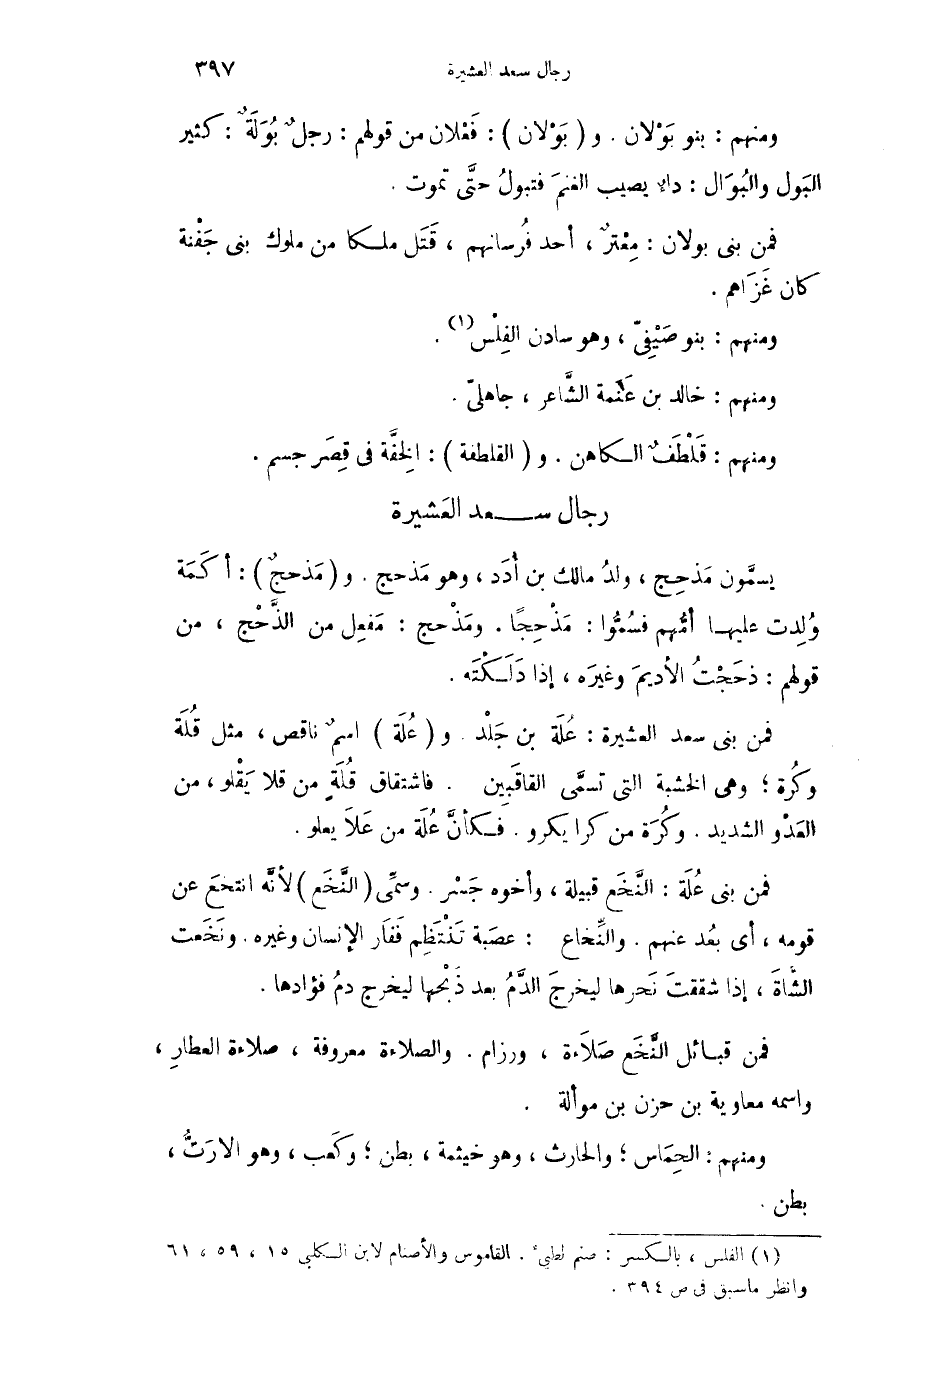 رجال سعد العشيرة ٣٩٧
ومنهم : بنو بَوْلان . و ( بَوْلان ) : فَعْلان من قولهم : رجلٌ بُوَلَةٌ : كثير
البَول والبُوَال : داء يصيب الغنمَ فتبولُ حتَّى تموت .
فمن بنى بولان : مِعْترٌ ، أحد فُرسانهم ، قَتَل ملكا من ملوك بنى جَفْنة
كان غَزَاهم .
ومنهم : بنو صَيْفِيّ ، وهو سادن الفِلْس (١) .
ومنهم : خالد بن عَنَمة الشَّاعر ، جاهلىّ .
ومنهم : قَلْطَفٌ الكاهن . و ( القلطفة ) : الخِفَّة فى قِصَر جسم .
رجال سعد العَشيرة
يسمَّون مَذحِج ، ولدُ مالك بن أُدَد ، وهو مَذحج . و ( مَذحجٌ ) : أكَمَة
وُلِدت عليها أمُّهم فسُمُّوا : مَذْحِجًا . ومَذْحج : مَفعِل من الذَّحْج ، من
قولهم : ذحَجْتُ الأديمَ وغيرَه ، إذا دَلَكْتَه .
فمن بنى سعد العشيرة : عُلَة بن جَلْد . و ( عُلَة ) اسمٌ ناقص ، مثل قُلَة
وكُرة ؛ وهى الخشبة التى تسمَّى القاقَبِين . فاشتقاق قُلَةٍ من قلا يَقْلو ، من
العَدْو الشديد . وكُرَة من كرا يكرو . فكأنَّ عُلة من عَلَا يعلو .
فمن بنى عُلَة : النَّخَع قبيلة ، وأخوه جَسْر . وسمِّى ( النَّخَع ) لأنَّه انتخعَ عن
قومه ، أى بعُد عنهم . والنِّخاع : عصَبة تَنْتَظِم فَقَار الإنسان وغيره . ونَخَعت
الشَّاةَ ، إذا شققتَ نَحرها ليخرجَ الدَّمُ بعد ذَبْحها ليخرج دمُ فؤادها .
فمن قبائل النَّخَع صَلَاءة ، ورزام . والصلاءة معروفة ، صلاءة العطارِ ،
واسمه معاوية بن حزن بن موألة .
ومنهم : الحِمَاس ؛ والحارث ، وهو خيثمة ، بطن ؛ وكَعب ، وهو الارَتُّ ،
بطن .
(١) الفلس ، بالكسر : صنم لطيئ . القاموس والأصنام لابن الكلبي ١٥ ، ٥٩ ، ٦١
وانظر ماسبق فى ص ٣٩٤ .